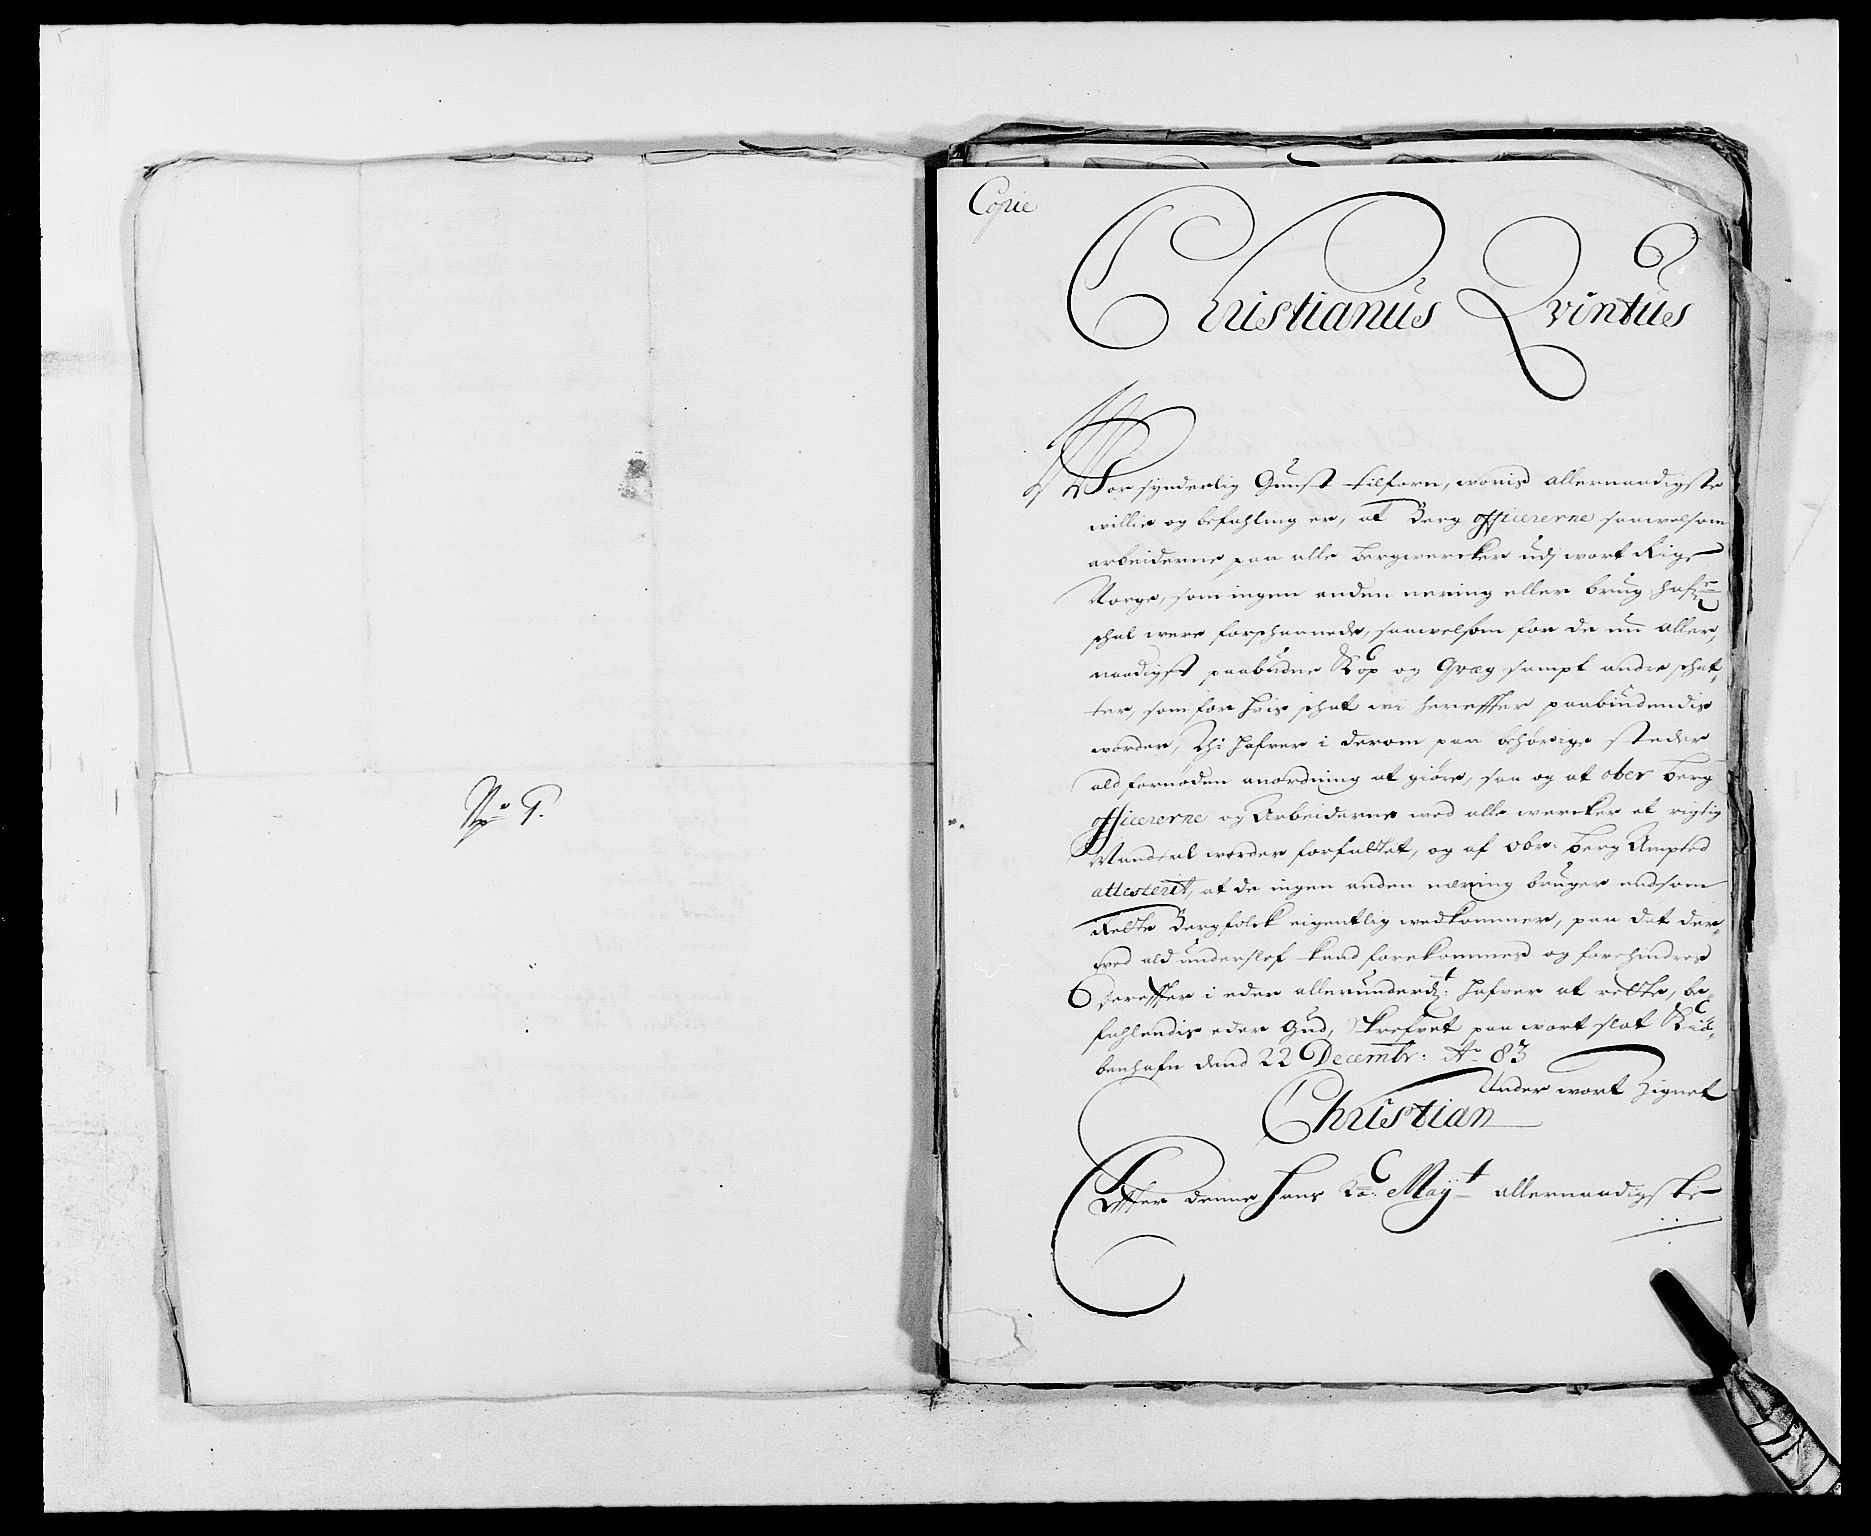 No 9.
Copie
Christianus Qvintus
Vor synderlig Gunst tilforn, voris allernaadigste
willie og befahling er, at Berg officererne saavelsom
arbeiderne paa alle Bergwercker udj wort Rige
Norge, som ingen anden nering eller brug hafr
schal were forschaanede, saavelsom for de nu aller,
naadigst paabudne Kop og Qvæg sampt andre schat-
ter, som for hvis schat wi hereffter paabindendis
worder, Thi hafver i derom paa behörige steder
ald fornöden anordning at giöre, saa og at ober Berg
officererne og Arbeiderne wed alle wercker et rigtig
Mandtal worder forfattet, og af Obr: Berg Ampted
attesterit, at de ingen anden næring bruger endsom
Rette Bergfolck eigentlig wedkommer, paa dat der-
wed ald underslef kand forekommes og forhindres
Dereffter i eder allerunderdt: hafver at rette, be-
fahlendis eder Gud, Skrefvet paa wort slot Kiö-
benhafn dend 22 Decembr: Ao 83
Under wort Zignet
Christian
Effter denne Hans Ko: Mayt allernaadigste